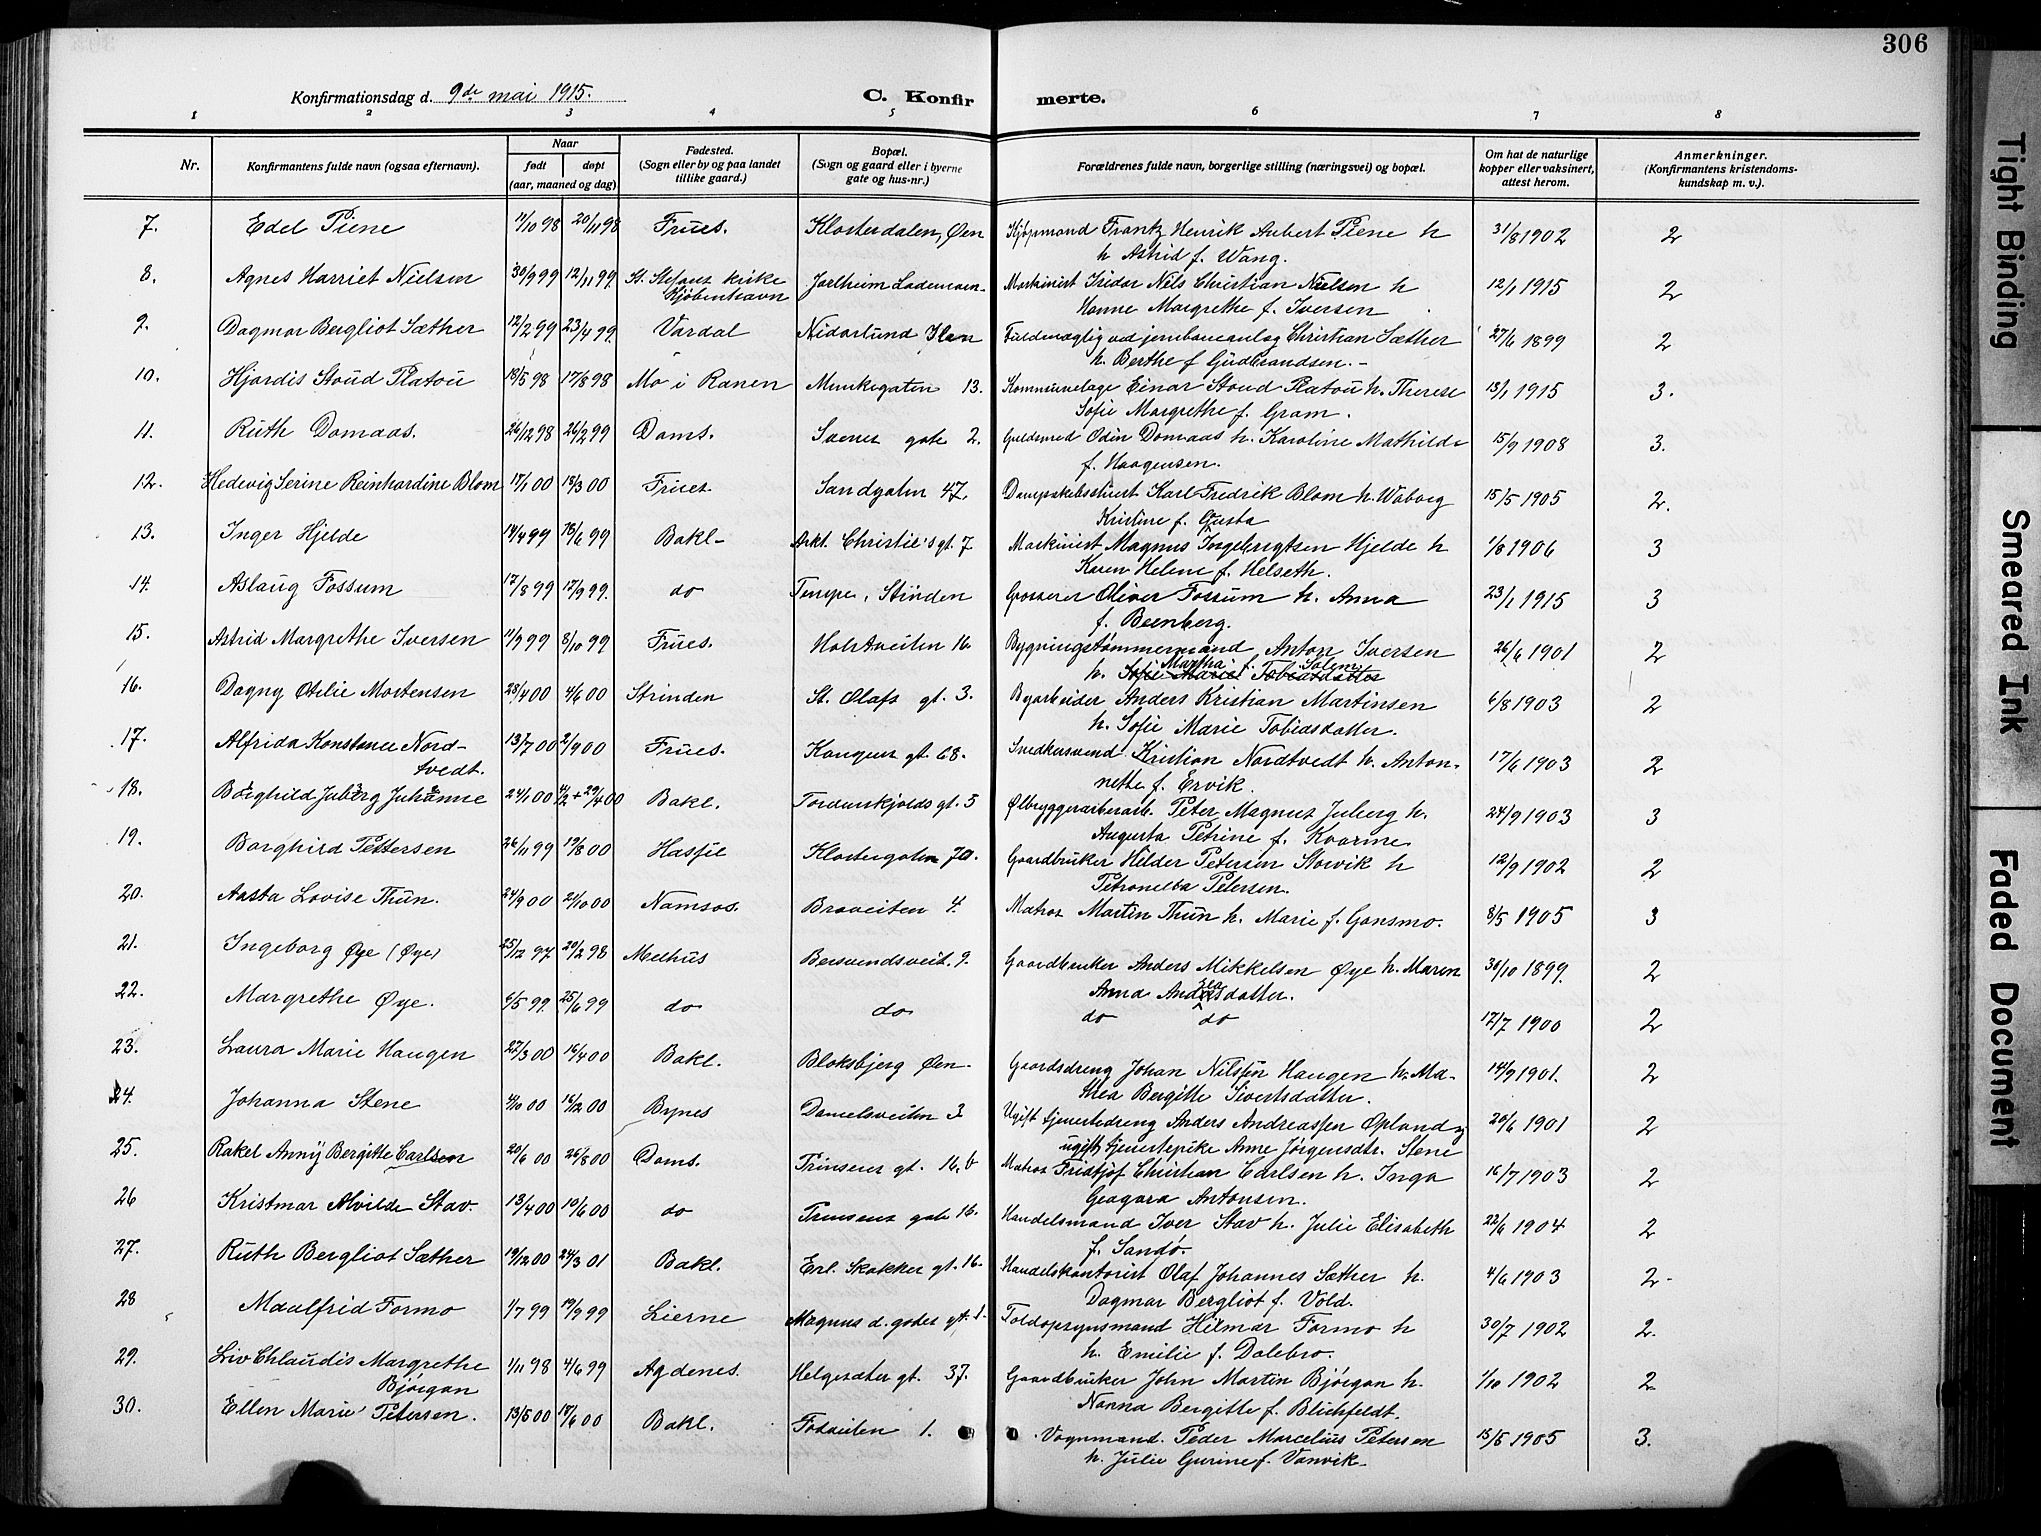 306
Konfirmationsdag d. 9de mai 1915.
C. Konfirmerte.
1 2 3 4 5 6 7 8
Nr.
Konfirmantens fulde navn (ogsaa efternavn).
Naar
født døpt
(aar, maaned og dag)
Fødested.
(Sogn eller by og paa landet
tillike gaard.)
Bopæl.
(Sogn og gaard eller i byerne
gate og hus-nr.)
Forældrenes fulde navn, borgerlige stilling (næringsvei) og bopæl.
Om hat de naturlige
kopper eller vaksinert,
attest herom.
Anmerkninger.
(Konfirmantens kristendoms-
kundskap m. v.).
7. Edel Piene 11/10 98 20/11 98 Frues. Klosterdalen, Øen Kjøpmand Frantz Henrik Aubert Piene h 31/8 1902 2
h Astrid f. Wang.
8. Agnes Harriet Nielsen 30/9 99 12/11 99 St. Stefans kirke Jarlheim Lademoen Maskinist Isidor Nils Christian Nielsen h 12/1 1915 2
Kjøbenhavn Hanne Margrethe f. Iversen
9. Dagmar Bergliot Sæther 12/2 99 23/4 99 Vardal Nidarlund Ilen Fuldmægtig ved jernbaneanlæg Christian Sæther 27/6 1899 2
h. Berthe f Gudbrandsen.-
10. Hjørdis Stoud Platou 18/5 98 17/8 98 Mo i Ranen Munkegaten 13. Kommunelæge Einar Stoud Platou h. Therese 13/1 1915 3.
Sofie Margrethe f. Gram.
11. Ruth Domaas. 26/12 98 26/2 99 Doms. gate 2. Guldsmed Odin Domaas h. Karoline Mathilde 15/9 1908 3.
f. Haagensen.
12. Hedevig Serine Reinhardine Blom 17/1 00 18/3 00 Frues Sandgaten 47 Karl Fredrik Blom h. 15/5 1905 2.
Kristine f. Gusta
13. Inger Hjelde 14/4 99 18/6 99 Bakl- Arkt. Christie's gt. 7 Maskinist Magnus Ingebrigtsen Hjelde h 1/8 1906 3
Karen Helene f. Helseth.
14. Aslaug Fossum 17/8 99 17/9 99. do Tempe, Strinden Grosserer Oliver Fossum h. Anna 23/1 1915 3
f. Beenberg.
15. Astrid Margrethe Iversen 11/9 99 8/10 99 Frues. Holstveiten 16. Bygningstømmermand Anton Iversen 26/6 1901 2
h. Sofie Marie Tobiasdatter Martha f. Solem
16. Dagny Otilie Mortensen 28/4 00 4/6 00 Strinden St. Olafs gt. 3. Byarbeider Anders Kristian Martinsen 6/8 1903 2
h. Sofie Marie Tobiasdatter.
17. Alfrida Konstance Nord- 13/7 00 2/9 00 Frues. Kongens gt. 68. Snedkersvend Kristian Nordtvedt h. Anton- 17/6 1903 2
tvedt. nette f. Ervik.
18. Borghild Juberg Juhanne 24/1 00 29/4 00 Bakl. Tordenskjolds gt. 5 Ølbryggeriarbeid. Peter Magnus Juberg h. 24/9 1903 3
Augusta Petrine f. Kvarme
19. Borghild Pettersen 26/11 99 19/8 00 Hasfil Klostergaten 70. Gaardbruker Hilder Petersen Storvik h 12/9 1902 2
Petronella Petersen.
20. Aasta Lovise Thun. 24/9 00 21/10 00 Namsos. Braveiten 4. Matros Martin Thun h. Marie f. Gansmo. 8/5 1905 3
21. Ingeborg Øye (Øye) 25/12 97 20/2 98 Melhus Bersvendsveit. 9. Gaardbruker Anders Mikkelsen Øye h. Maren 30/10 1899. 2
Anna Andersdatter.
22. Margrethe Øye. 6/5 99. 25/6 99 do do do do 17/7 1900 2
23. Laura Marie Haugen 27/3 00 16/4 00 Bakl. Bloksbjerg Øen. Gaardsdreng Johan Nilssen Haugen h. Ma- 14/9 1901. 2
thea Bergitte Sivertsdatter.
24. Johanna Stene 4/10 00 16/12 00 Bynes Danielsveiten 3 Ugift tjenestedreng Anders Andreassen Opland y 20/6 1901 2
ugift tjenestepike Anne Jørgensdtr. Stene
25. Rakel Anny Bergitte Carlsen 20/6 00 26/8 00 Doms. Prinsens gt. 16.b Matros Fridtjof Christian Carlsen h. Inga 16/7 1903 2
Antonsen.
26 Kristmar Alvilde Stav. 13/4 00 10/6 00 do Prinsens gate 16. Handelsmand Iver Stav h. Julie Elisabeth 22/6 1904 2
f. Sandø.
27. Ruth Bergliot Sæther 19/12 00 24/3 01 Bakl. Erl. Skakkes gt. 16. Handelskontorist Olaf Johannes Sæther h. 4/6 1903 2-
Dagmar Bergliot f. Vold.
28 Maalfrid Formo 1/7 99 19/9 99 Lierne Magnus d. godes gt. 1. Toldopsynsmand Hilmar Formo h 30/7 1902 2.
h. Emilie f. Dalebro.
29. Liv Chlaudis Margrethe 1/11 98 4/6 99 Agdenes. Helgesæter gt. 37. Gaardbruker John Martin Bjørgan h. 1/10 1902 2
Bjørgan Nanna Bergitte f. Blichfeldt.
30. Ellen Marie Petersen. 13/5 00 17/6 00 Bakl. Fosveiten 1. Vognmand Peder Marcelius Petersen 13/5 1905 3.
h. Julie Gurine f. Vanvik.
Tight Binding
Smeared Ink
Faded Document